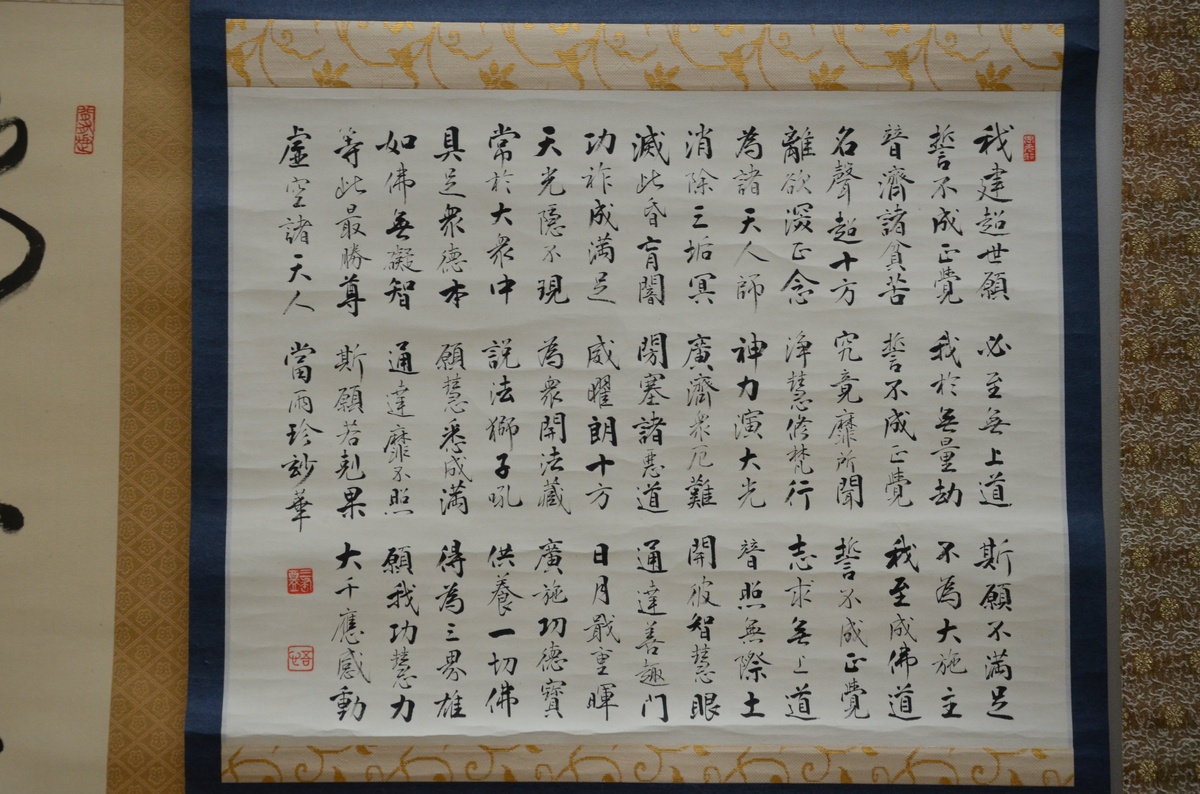 我建超世願 必至無上道 斯願不満足
誓不成正覺 我於無量劫 不為大施主
普濟諸貧苦 誓不成正覺 我至成佛道
名聲超十方 究竟靡所聞 誓不成正覺
離欲深正念 浄慧修梵行 志求無上道
為諸天人師 神力演大光 普照無際土
消除三垢冥 廣濟衆厄難 開彼智慧眼
滅此昏盲闇 閉塞諸悪道 通達善趣门
功祚成満足 威曜朗十方 日月戢重暉
天光隠不現 為衆開法蔵 廣施功德寶
常於大衆中 説法獅子吼 供養一切佛
具足衆德本 願慧悉成満 得為三界雄
如佛無礙智 通達靡不照 願我功慧力
等此最勝尊 斯願若剋果 大千應感動
虚空諸天人 當雨珍妙華